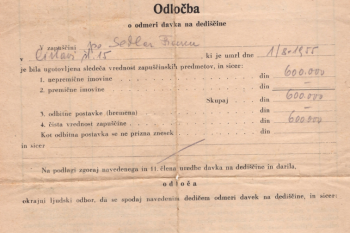 Odločba
o odmeri davka na dediščine
V zapuščini po
v št. 15 ki je umrl dne 1/8.1955
je bila ugotovljena sledeča vrednost zapuščinskih predmetov, in sicer:
1. nepremične imovine din 600.000
2. premične imovine din
Skupaj din 600.000
3. odbitne postavke (bremena) din
4. čista vrednost zapuščine din 600.000
Kot odbitna postavka se ne prizna znesek din
in sicer
Na podlagi zgoraj navedenega in 11. člena uredbe davka na dediščine in darila,
odloča
okrajni ljudski odbor, da se spodaj navedenim dedičem odmeri davek na dediščine, in sicer: